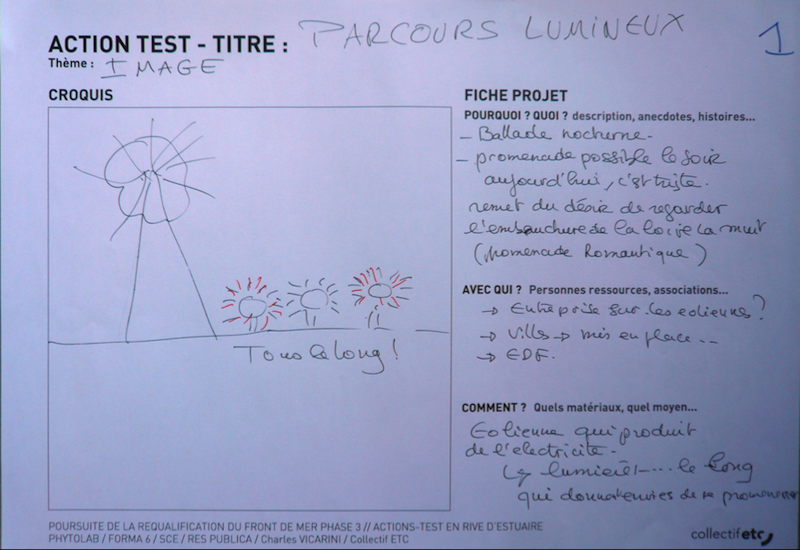 ACTION TEST - TITRE : PARCOURS LUMINEUX
1
Thème : IMAGE
CROQUIS
Tous le long !
FICHE PROJET
POURQUOI ? QUOI ? description, anecdotes, histoires...
- Ballade nocturne -
- promenade possible le soir
aujourd'hui, c'est triste.
remet du désir de regarder
l'embouchure de la loire la nuit
(promenade Romantique)
AVEC QUI ? Personnes ressources, associations...
→ Entreprise sur les eoliennes ?
→ Villes → mis en place...
→ EDF.
COMMENT ? Quels matériaux, quel moyen...
Eolienne qui produit
de l'électricité -
↳ lumière .... le long
qui donnent envies de se promener
POURSUITE DE LA REQUALIFICATION DU FRONT DE MER PHASE 3 // ACTIONS-TEST EN RIVE D'ESTUAIRE
PHYTOLAB / FORMA 6 / SCE / RES PUBLICA / Charles VICARINI / Collectif ETC
collectif etc